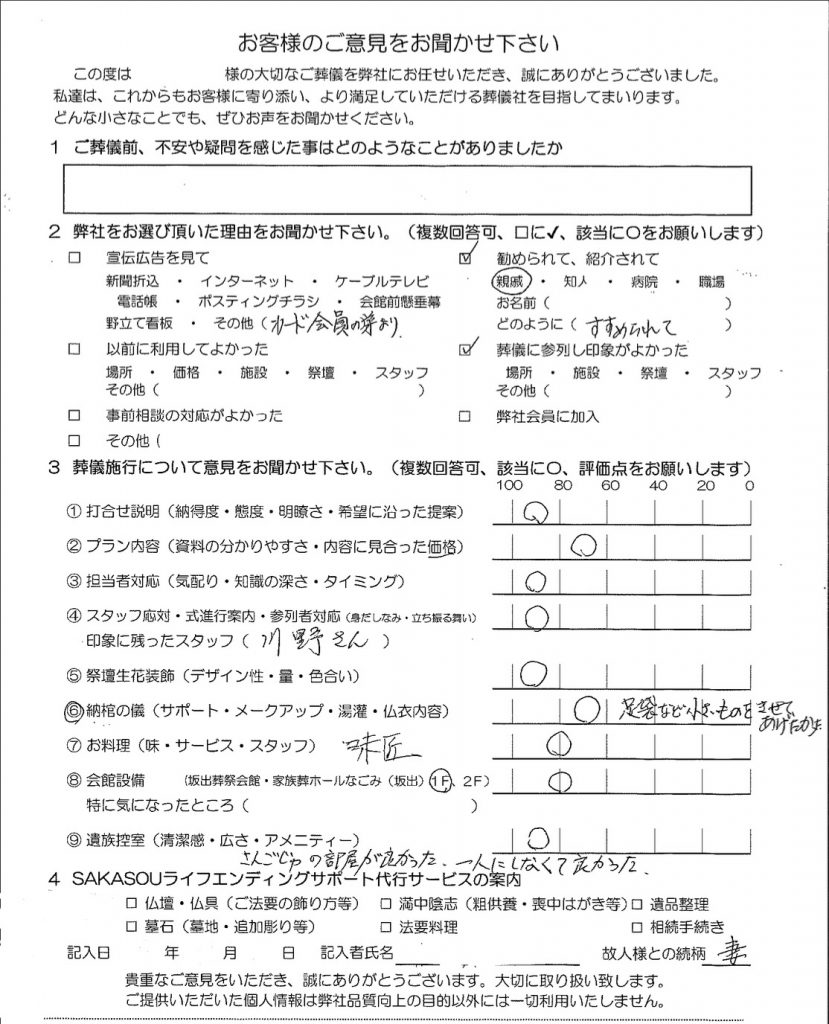 お客様のご意見をお聞かせ下さい
この度は 様の大切なご葬儀を弊社にお任せいただき、誠にありがとうございました。
私達は、これからもお客様に寄り添い、より満足していただける葬儀社を目指してまいります。
どんな小さなことでも、ぜひお声をお聞かせください。
1 ご葬儀前、不安や疑問を感じた事はどのようなことがありましたか
2 弊社をお選び頂いた理由をお聞かせ下さい。（複数回答可、□に✓、該当に○をお願いします）
□ 宣伝広告を見て
新聞折込 ・ インターネット ・ ケーブルテレビ
電話帳 ・ ポスティングチラシ ・ 会館前懸垂幕
野立て看板 ・ その他（カード会員の弟より
☑ 勧められて、紹介されて
親戚 ・ 知人 ・ 病院 ・ 職場
お名前（ ）
どのように（ すすめられて ）
□ 以前に利用してよかった
場所 ・ 価格 ・ 施設 ・ 祭壇 ・ スタッフ
その他（ ）
☑ 葬儀に参列し印象がよかった
場所 ・ 施設 ・ 祭壇 ・ スタッフ
その他（ ）
□ 事前相談の対応がよかった
□ 弊社会員に加入
□ その他（
3 葬儀施行について意見をお聞かせ下さい。（複数回答可、該当に○、評価点をお願いします）
100 80 60 40 20 0
① 打合せ説明（納得度・態度・明瞭さ・希望に沿った提案）
② プラン内容（資料の分かりやすさ・内容に見合った価格）
③ 担当者対応（気配り・知識の深さ・タイミング）
④ スタッフ応対・式進行案内・参列者対応（身だしなみ・立ち振る舞い）
印象に残ったスタッフ（ 川野さん ）
⑤ 祭壇生花装飾（デザイン性・量・色合い）
⑥ 納棺の儀（サポート・メークアップ・湯灌・仏衣内容） 足袋など小さいものをさせて
あげたかった
⑦ お料理（味・サービス・スタッフ） 味匠
⑧ 会館設備 （坂出葬祭会館・家族葬ホールなごみ（坂出）1F、2F）
特に気になったところ（ ）
⑨ 遺族控室（清潔感・広さ・アメニティー）
さんごじゅの部屋が良かった、一人にしなくて良かった、
4 SAKASOUライフエンディングサポート代行サービスの案内
□ 仏壇・仏具（ご法要の飾り方等） □ 満中陰志（粗供養・喪中はがき等） □ 遺品整理
□ 墓石（墓地・追加彫り等） □ 法要料理 □ 相続手続き
記入日 年 月 日 記入者氏名 故人様との続柄 妻
貴重なご意見をいただき、誠にありがとうございます。大切に取り扱い致します。
ご提供いただいた個人情報は弊社品質向上の目的以外には一切利用いたしません。